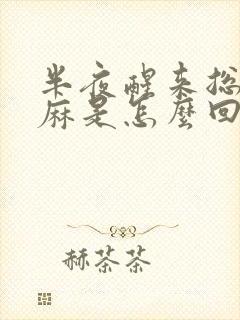 半夜醒来总
麻是怎麼回
赫茶茶